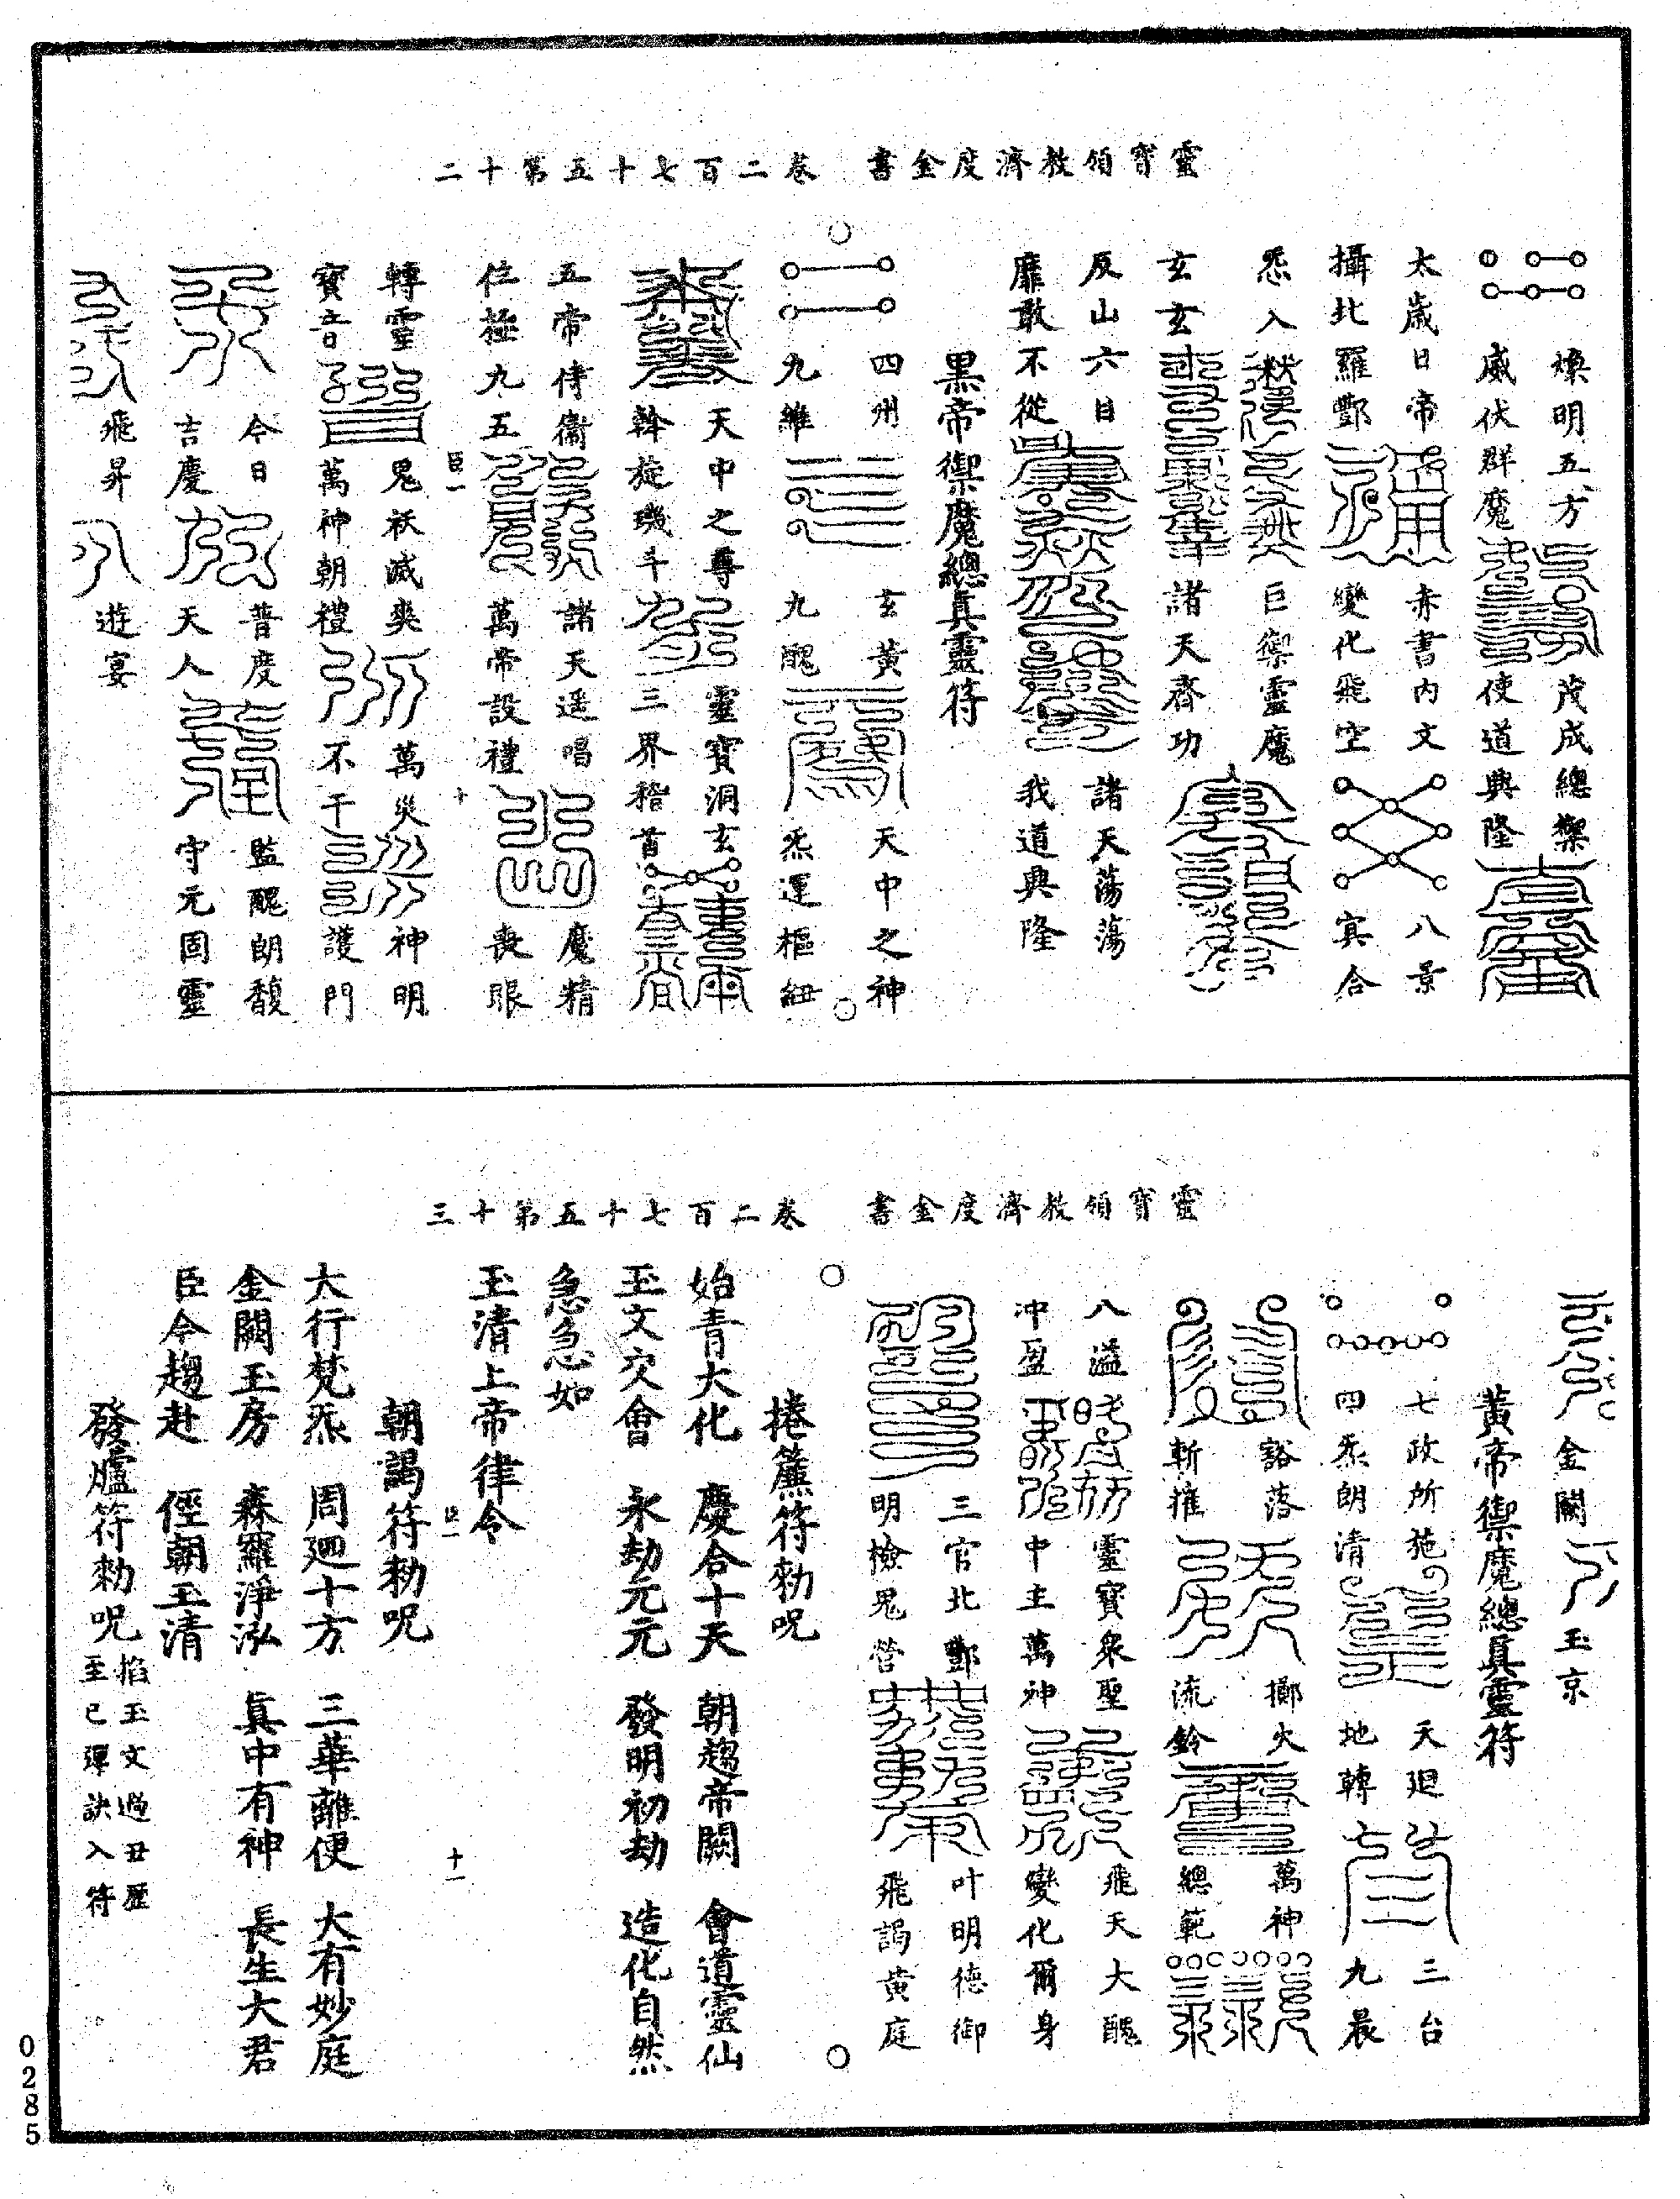 靈寶領教濟度金書　卷二百七十五第十二
煥明五方　茂成總禦
威伏群魔　使道興隆
太歲日帝　赤書內文　八景
攝北羅酆　變化飛空　冥合
炁入　巨禦靈魔
玄玄　諸天齊功
反山六目　諸天蕩蕩
靡敢不從　我道興隆
黑帝禦魔總真靈符
四州　玄黃　天中之神
九維　九醜　炁運樞紐
天中之尊　靈寶洞玄
斡旋璣斗　三界稽首
五帝侍衞　諸天遥唱　魔精
位極九五　萬帝設禮　喪眼
臣一　十
轉靈　鬼祅滅爽　萬災　神明
寶音　萬神朝禮　不干　護門
今日　普度　監醜朗馥
吉慶　天人　守元固靈
飛昇　遊宴
靈寶領教濟度金書　卷二百七十五第十三
金闕　玉京
黃帝禦魔總真靈符
七政所施　天廻　三台
四炁朗清　地轉　九晨
豁落　擲火　萬神
斬摧　流鈴　總範
八溢　靈寶眾聖　飛天大醜
沖盈　中主萬神　變化爾身
三官北酆　叶明德御
明檢鬼營　飛謁黃庭
捲簾符勑呪
始青大化　慶合十天　朝趨帝闕　會道靈仙
玉文欠會　永劫元元　發明初劫　造化自然
急急如
玉清上帝律令
臣一　十一
朝謁符勑呪
大行梵炁　周廻十方　三華離便　大有妙庭
金闕玉房　森羅淨泓　真中有神　長生大君
臣今趨赴　徑朝玉清
發爐符勑呪　掐玉文過丑歷
至巳彈訣入符
0285